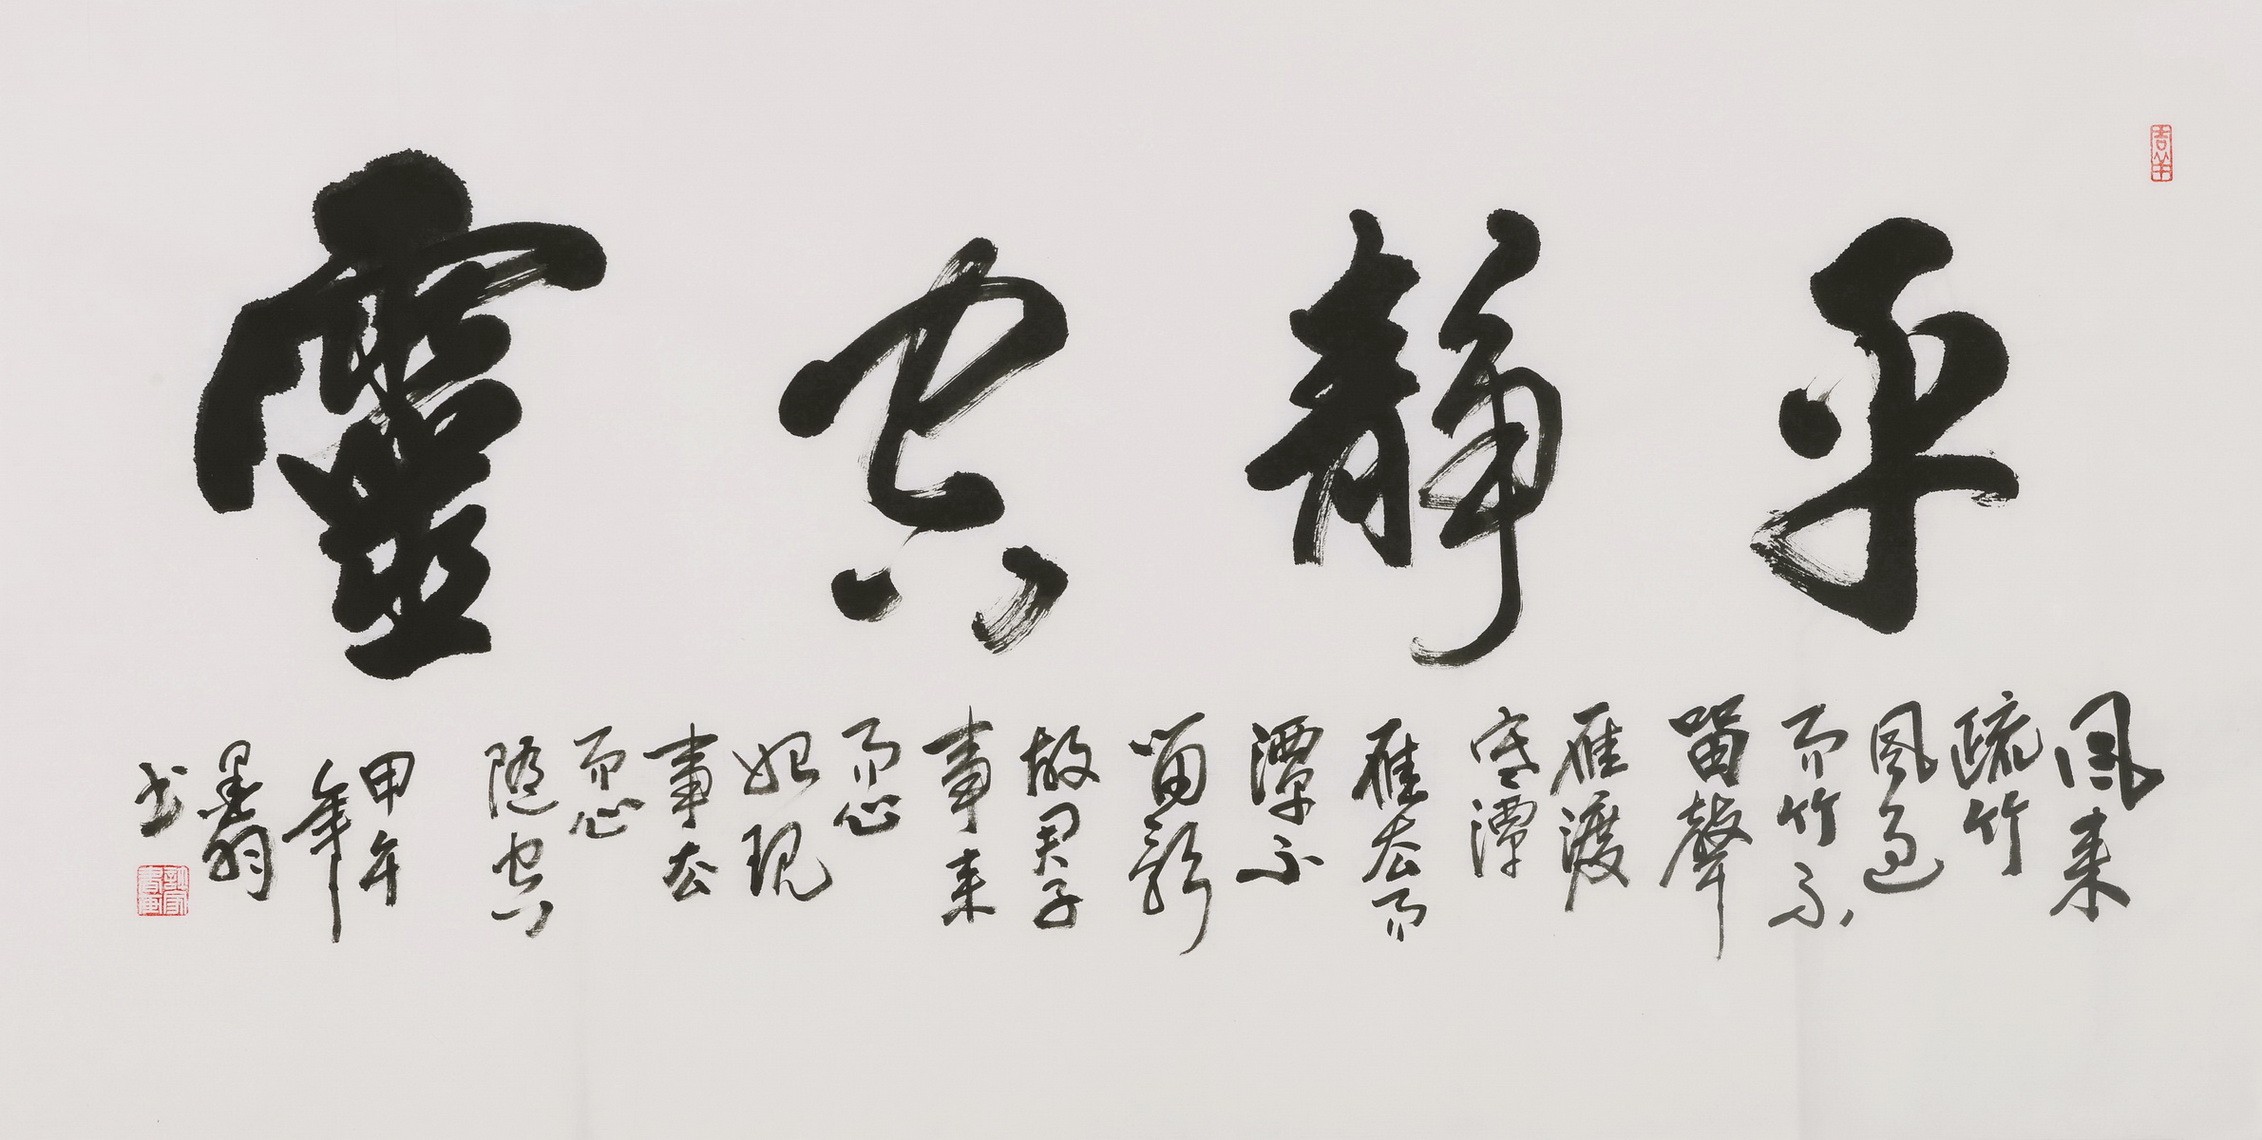 平静空靈
風来
疏竹
風過
而竹不
留聲
雁渡
寒潭
雁去而
潭不
留影
故君子
事来
而心
始現
事去
而心
隨空
甲午
年
墨翁
书